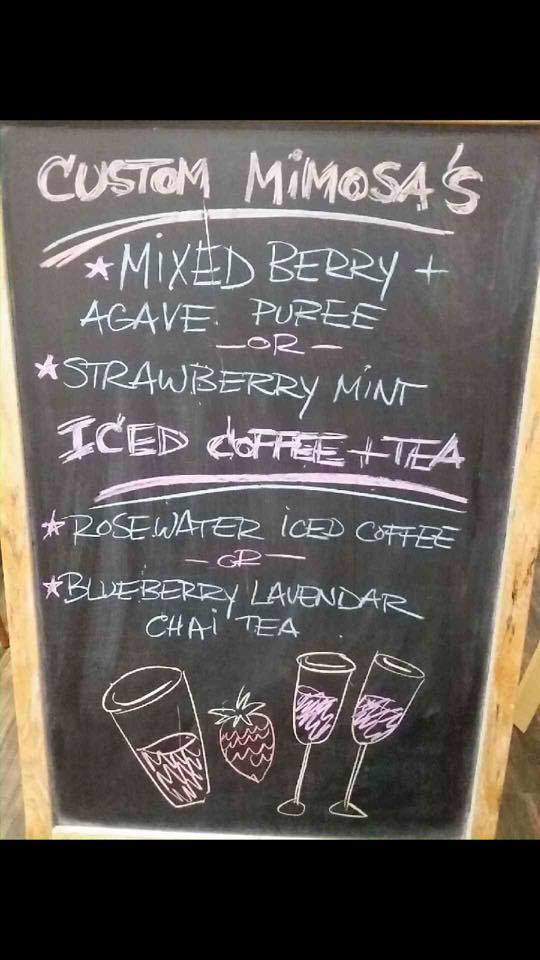 CUSTOM MIMOSA'S
★ MIXED BERRY +
AGAVE. PUREE
—OR—
★ STRAWBERRY MINT
ICED COFFEE + TEA
★ ROSE.WATER ICED COFFEE
—OR—
★ BLUEBERRY LAVENDAR
CHAI TEA